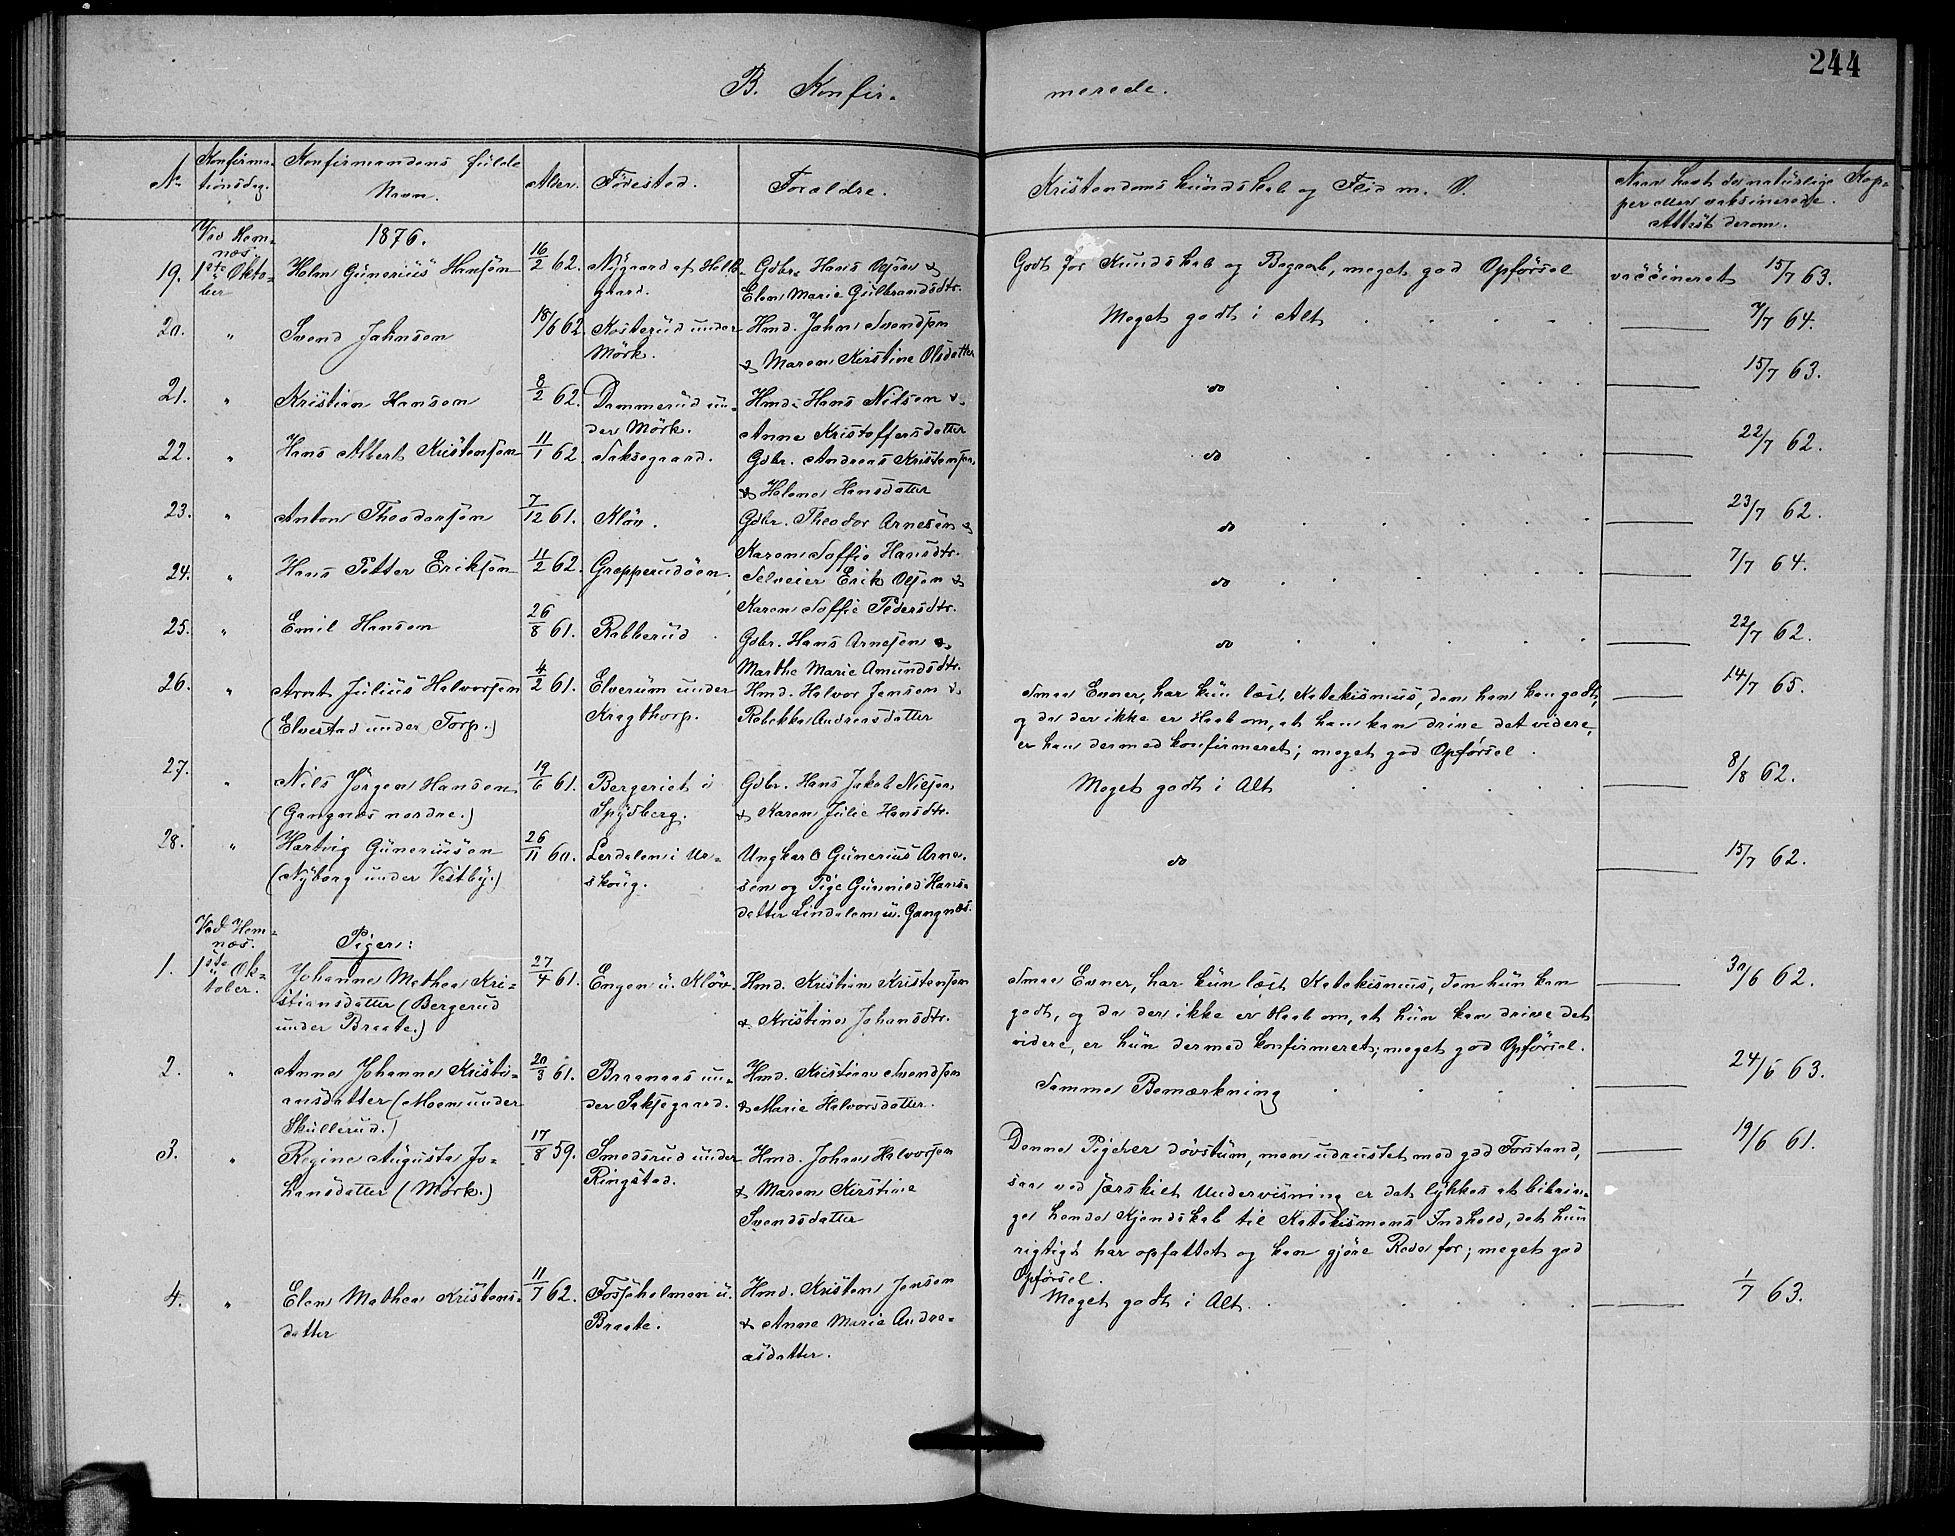 244
B. Konfir-
merede.
No.
Konfirma-
tionsdag.
Konfirmandens fulde
Navn.
Alder.
Födested.
Forældre.
Kristendomskundskab og Flid m. V.
Naar havt de naturlige Kop-
per eller vaksinerede.
Attest derom.
Ved Hem-
næs.
1876.
19. 1ste Okto-
ber
Gunerius Hansen
16/2 62.
Nygaard af
gaard.
Gdbr. Hans Olsen &
Elen Marie Gulbrandsdtr.
Godt for Kundskab og Begreb, meget god Opförsel
vaccineret 15/7 63.
20. " Svend Jahnsen
18/6 62.
Kosterud under
Mörk.
Hmd. Jahn Svendsen
& Maren Kirstine Olsdatter
Meget godt i Alt
7/7 64.
21. " Kristian Hansen
8/2 62.
Dammerud un-
der Mörk.
Hmd. Hans Nilsen &
Anne Kristoffersdatter
do
15/7 63.
22. " Hans Albert Kristensen
11/1 62.
Saksegaard.
Gdbr. Andreas Kristensen
& Helene Hansdatter
do
22/7 62.
23. " Anton Theodorsen
7/12 61.
Klöv.
Gdbr. Theodor Arnesen &
Karen Soffie Hansdtr.
do
23/7 62.
24. " Hans Petter Eriksen
11/2 62.
Gropperudöen.
Selveier Erik Olsen &
Karen Soffie Pedersdtr.
do
7/7 64.
25. " Emil Hansen
26/8 61.
Rakkerud
Gdbr. Hans Arnesen &
Marthe Marie Amundsdtr.
do
22/7 62.
26. " Arnt Julius Halvorsen
(Elvestad under Torp.)
4/2 61.
Elverum under
Kragthorp.
Hmd. Halvor Jensen &
Rebekka Andreasdatter
Smaa Evner, har kun læst Katekismus, den han kan godt,
og da der ikke er Haab om, at han kan drive det videre,
er han dermed konfirmeret; meget god Opförsel.
14/7 65.
27. " Nils Jörgen Hansen
(Gangnæs nordre.)
19/6 61.
Bergeriet i
Spydberg.
Gdbr. Hans Jakob Nilsen
& Karen Julie Hansdtr.
Meget godt i Alt
8/8 62.
28. " Hartvig Guneriusen
(Nyborg under Vestby.)
26/11 60.
Lerdalen i Ur-
skoug.
Ungkarl Gunerius Arne-
sen og Pige Gunnild Hans-
datter Lindalen u. Gangnæs.
do
15/7 62.
Ved Hem-
næs.
Piger:
1. 1ste Ok-
tober.
Johanne Mathea Kri-
stiansdatter (Bergerud
under Braate.)
27/4 61.
Engen u. Klöv.
Hmd. Kristian Kristensen
& Kristine Johansdtr.
Smaa Evner, har kun læst Katekismus, den hun kan
godt, og da der ikke er Haab om, at hun kan drive det
videre, er hun dermed konfirmeret; meget god Opförsel.
30/6 62.
2. " Anne Johanne Kristi-
ansdatter (Moen under
Skullerud.)
20/3 61.
Braanaas un-
der Saksegaard.
Hmd. Kristian Svendsen
& Marie Halvorsdatter.
Samme Bemærkning
24/6 63.
3. " Regine Augusta Jo-
hansdatter (Mörk.)
17/8 59.
Smedsrud under
Ringstad.
Hmd. Johan Halvorsen
& Maren Kirstine
Svendsdatter
Denne Pige er dövstum, men udrustet med god Forstand,
saa ved særskilt Undervisning er det lykkes at bibrin-
ge hende Kjendskab til Katekismens Indhold, det hun
rigtigt har opfattet og kan gjöre Rede for; meget god
Opförsel.
19/6 61.
4. " Elen Mathea Kristens-
datter
11/7 62.
Fosseholmen u.
Braate.
Hmd. Kristen Jensen
& Anne Marie Andre-
asdatter.
Meget godt i Alt.
1/7 63.